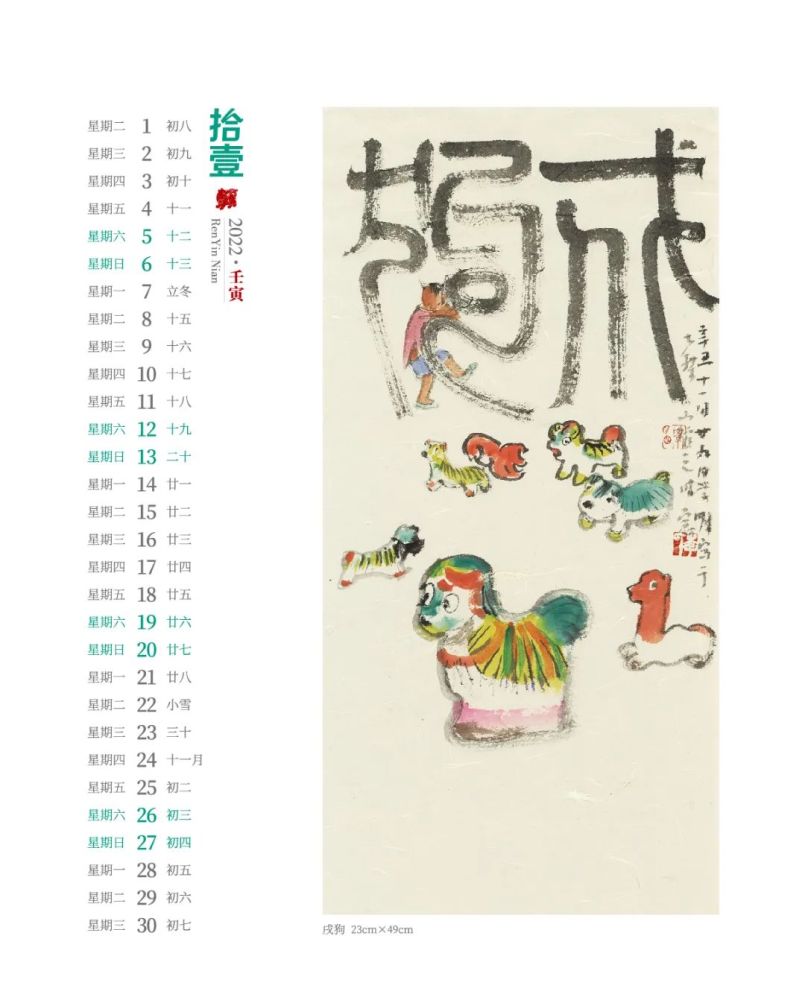 星期二 1 初八
星期三 2 初九
星期四 3 初十
星期五 4 十一
星期六 5 十二
星期日 6 十三
星期一 7 立冬
星期二 8 十五
星期三 9 十六
星期四 10 十七
星期五 11 十八
星期六 12 十九
星期日 13 二十
星期一 14 廿一
星期二 15 廿二
星期三 16 廿三
星期四 17 廿四
星期五 18 廿五
星期六 19 廿六
星期日 20 廿七
星期一 21 廿八
星期二 22 小雪
星期三 23 三十
星期四 24 十一月
星期五 25 初二
星期六 26 初三
星期日 27 初四
星期一 28 初五
星期二 29 初六
星期三 30 初七
拾壹
2022·壬寅
RenYin Nian
戌狗
辛丑十一月廿九日
戌狗 23cm×49cm